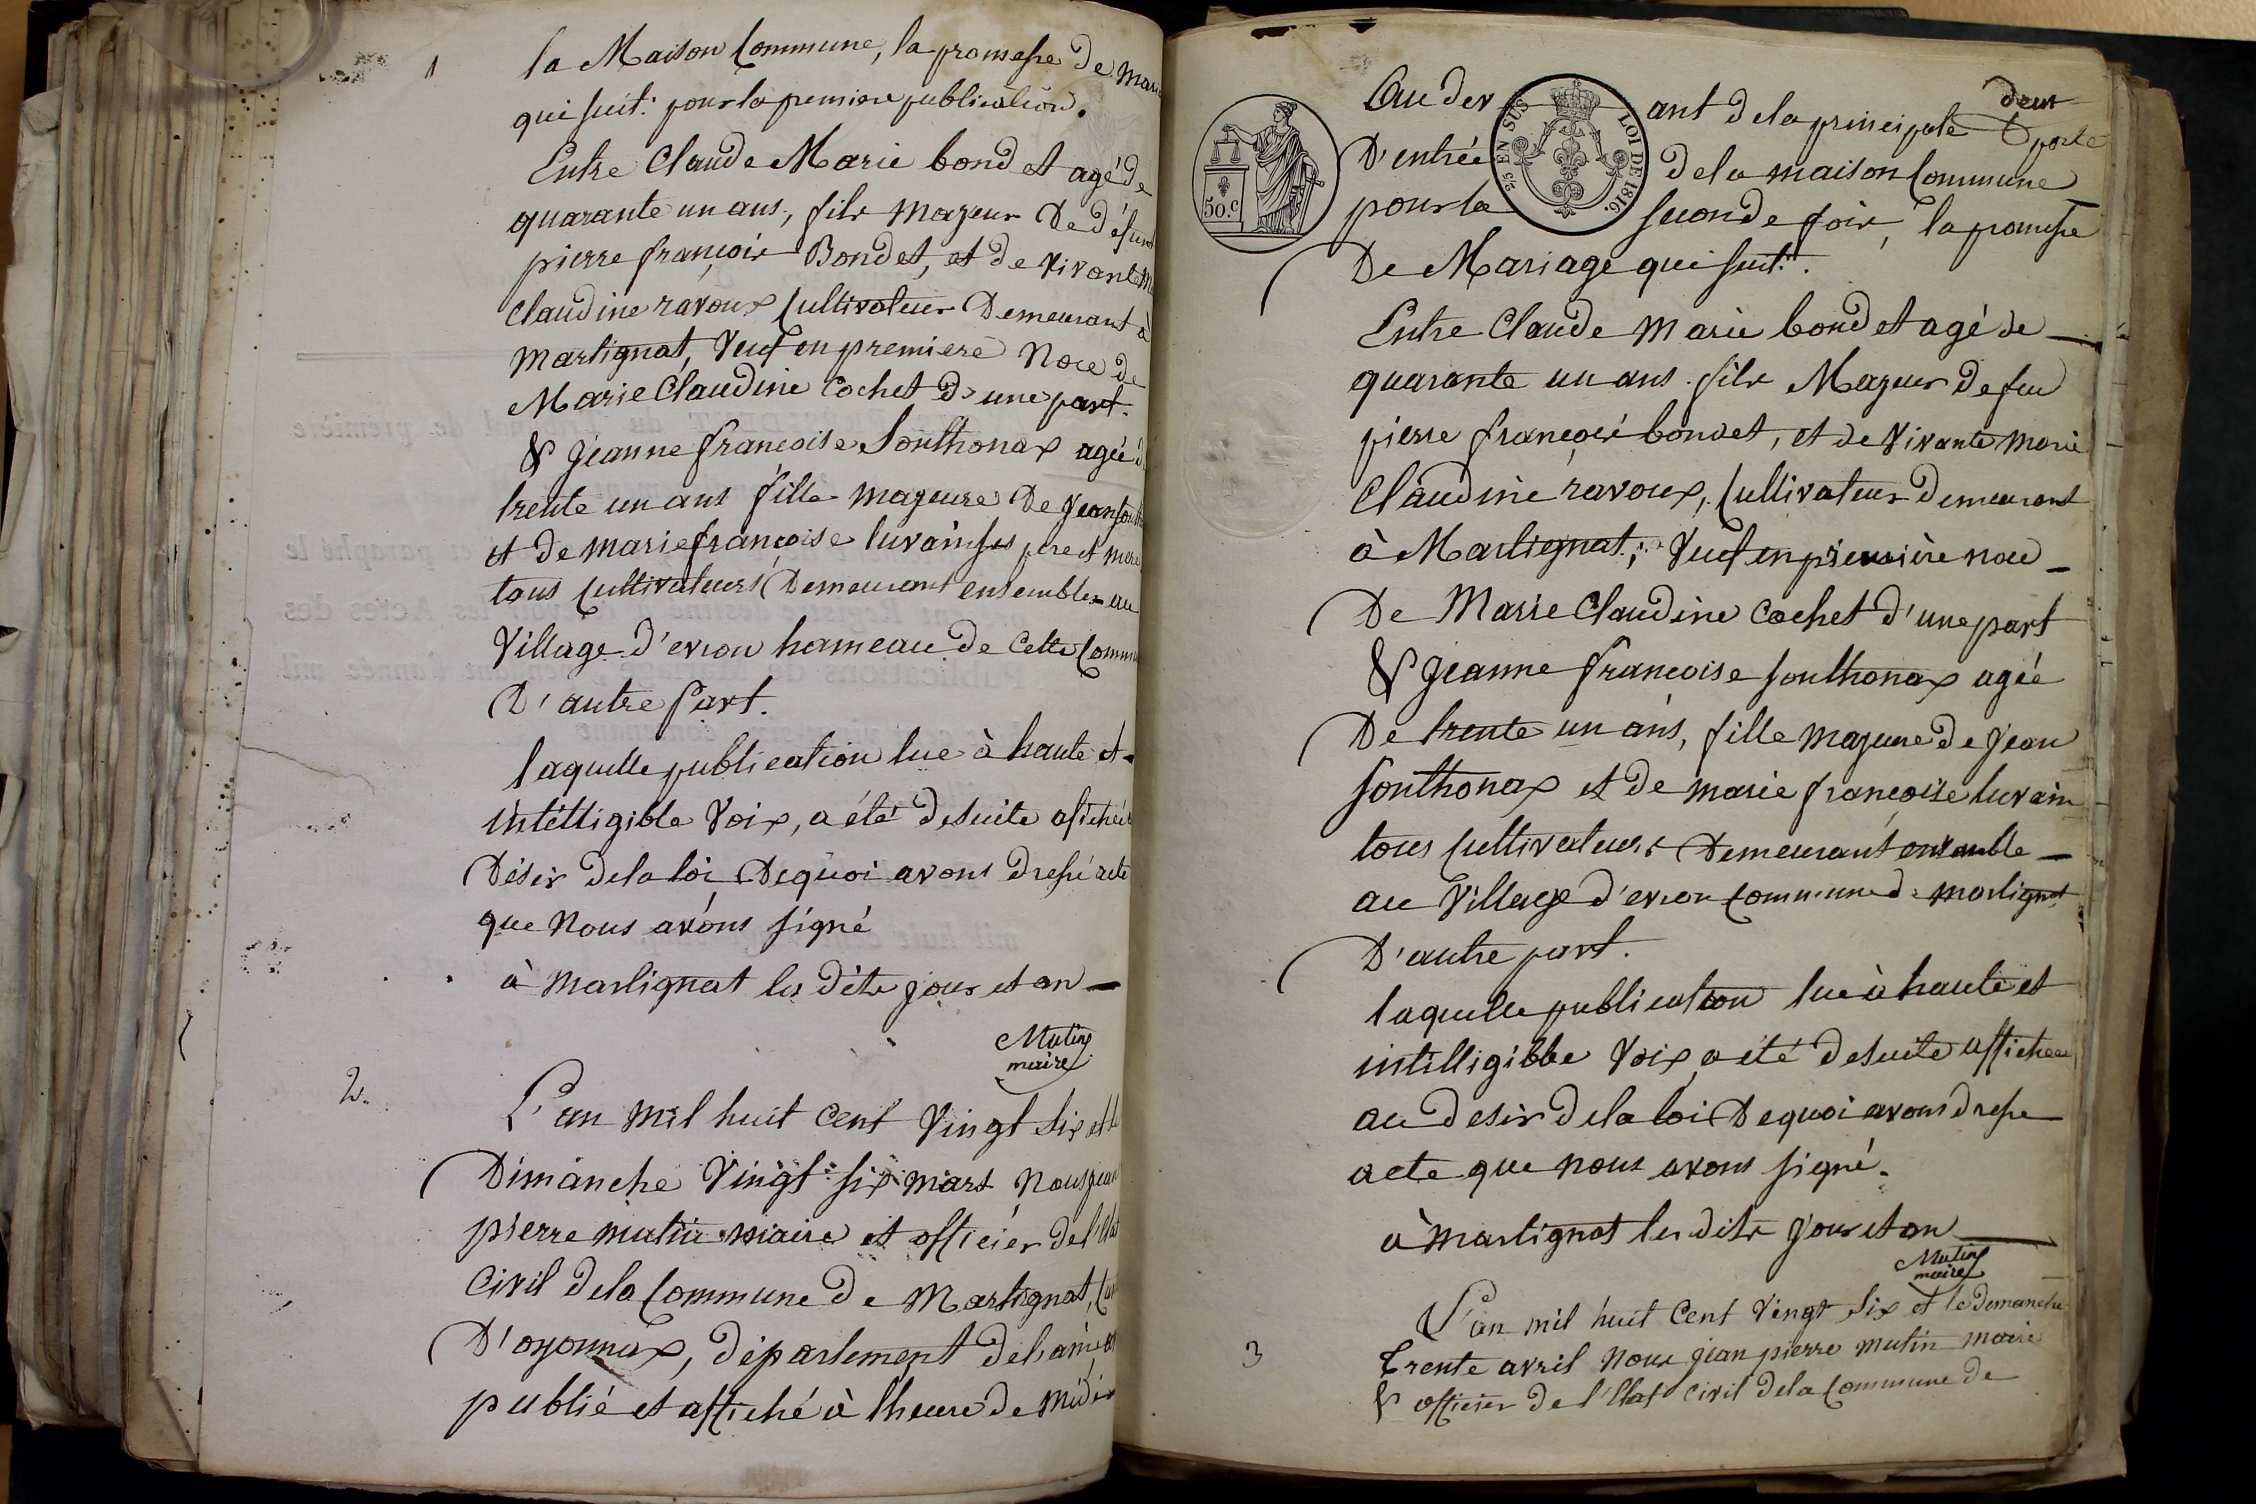 1
la Maison Commune, la promesse de Mari
qui suit: pour la premiere publication.
Entre Claude Marie bondet agé de
quarante un ans, fils mageur De défunt
pierre françois Bondet, et de vivante M
Claudine ravoux Cultivateur Demeurant à
Martignat, Veuf en premiere Noce de
Marie Claudine Cochet d'une part.
& jeanne francoise Sonthonax agée d
trente un ans fille mageure De jean Sonth
et de marie françoise luvain ses pere et mere
tous Cultivateurs Demeurant ensemble au
Village d'evron hameau de Cette Commu
D'autre Part.
laquelle publication lue à haute et
intélligible Voix, a été desuite afichée
Désir de la loi Dequoi avons dressé acte
que Nous avons signé
à Martignat les dits jour et an
Mutin
maire
2.
L'an mil huit cent Vingt six et le
Dimanche Vingt six mars Nous jean
pierre mutin maire et officier de l'Etat
Civil de la Commune de Martignat, Can
D'oyonnax, département de l'ain
publié et affiché à l'heure de midi
deux
Au dev ant de la principale porte
D'entrée de la maison Commune
pour la seconde fois, la promesse
De Mariage qui suit.
50.c
2/5 EN SUS
LOI DE 1816.
Entre Claude Marie bondet agé de
quarante un ans. fils Mageur De feu
pierre françois bondet, et de Vivante Marie
Claudine ravoux, Cultivateur Demeurant
à Martignat, Veuf en première noce
De Marie Claudine Cochet d'une part
& jeanne francoise sonthonax agée
De trente un ans, fille mageure de jean
sonthonax et de marie françoise luvain
tous Cultivateurs Demeurant ensemble
au Village d'evron Commune de Martignat
D'autre part.
laquelle publication lue à haute et
intilligible Voix, a été desuite affichee
au desir de la loi Dequoi avons dressé
acte que nous avons signé.
à Martignat les dits jour et an
Mutin
maire
3
L'an mil huit Cent Vingt Six et le Demanche
trente avril Nous jean pierre mutin maire
& officier de l'Etat civil de la Commune de